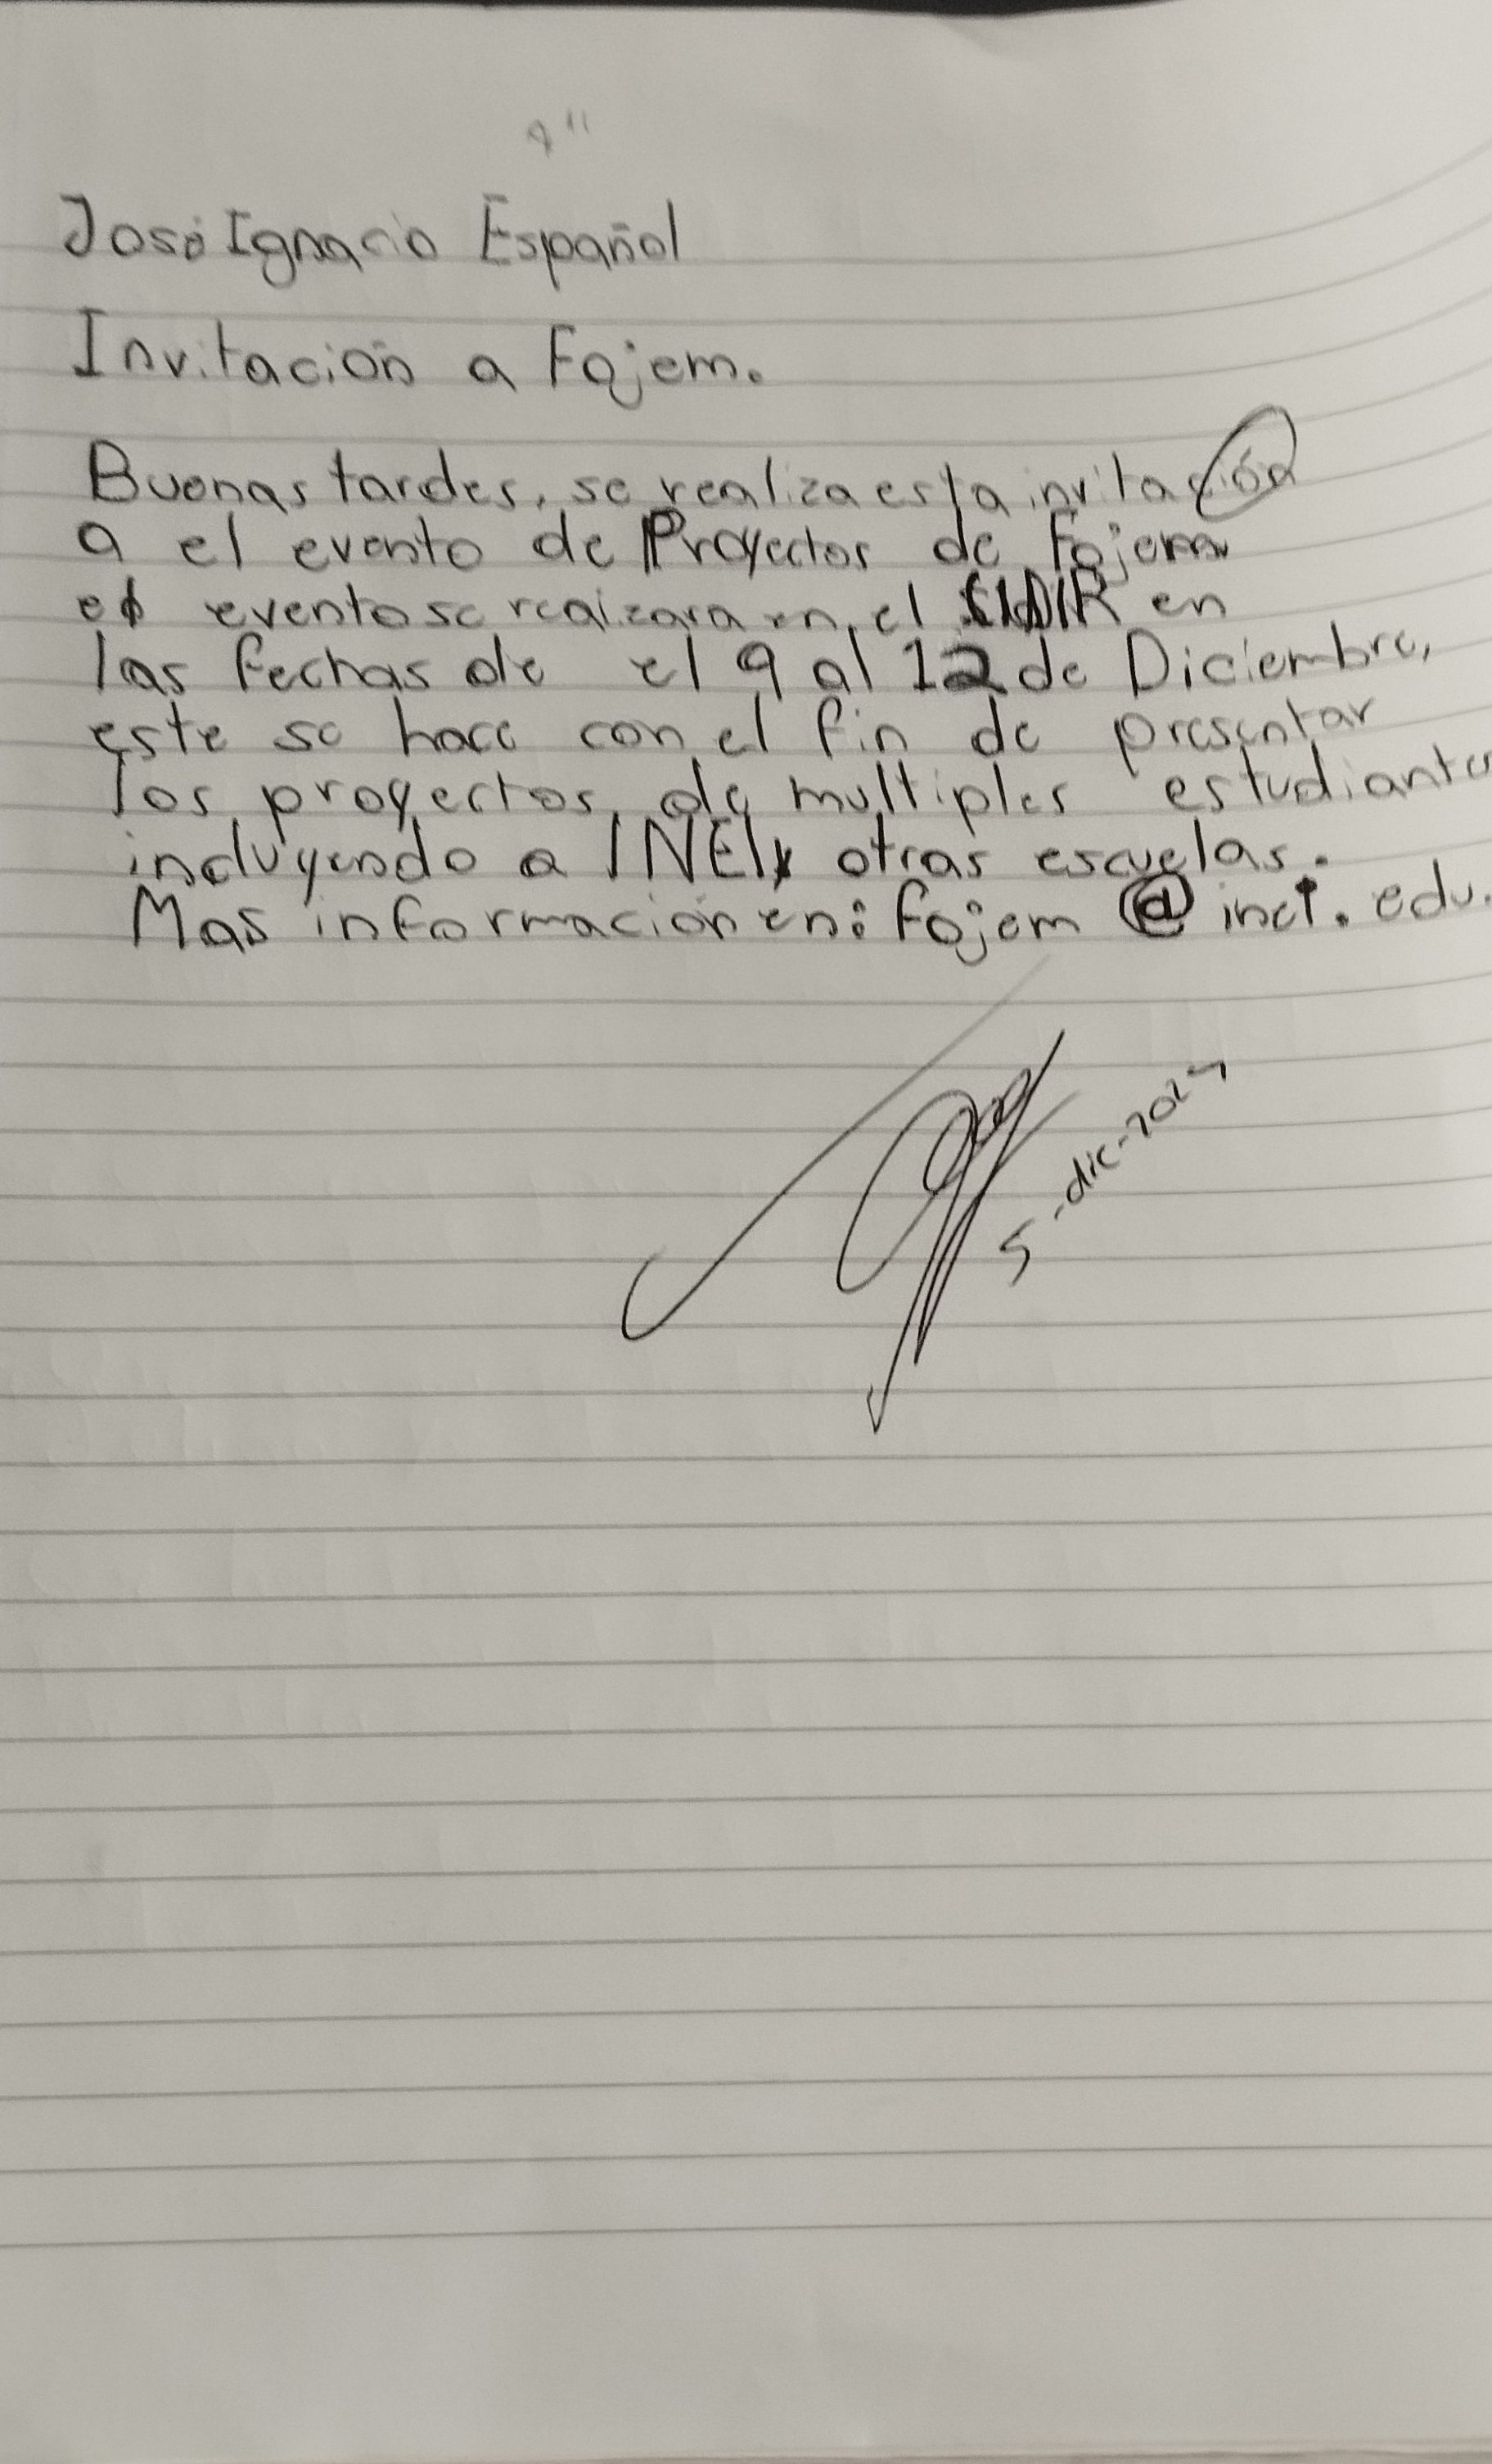 José Ignacio Español
Invitación a Fojem.
Buenas tardes, se realiza esta invitación
a el evento de Proyectos de Fojem
el evento se realizara en el en
las fechas de el 9 al 12 de Diciembre,
este se hace con el fin de presentar
los proyectos de multiples estudiantes
incluyendo a INEI y otras escuelas.
Mas información en: fojem @ inei. edu.
5-dic-2024